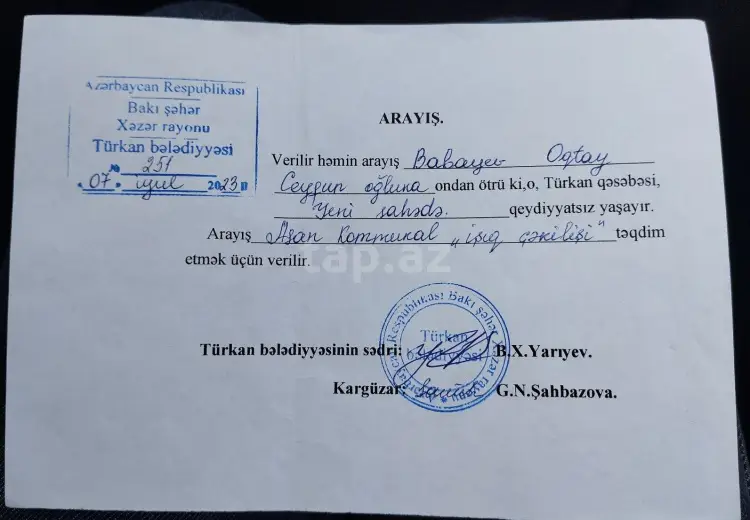 Azərbaycan Respublikası
Bakı şəhər
Xəzər rayonu
Türkan bələdiyyəsi
№ 251
"07" iyul 2023 il
ARAYIŞ.
Verilir həmin arayış Babayev Oqtay
Ceyhun oğluna ondan ötrü ki,o, Türkan qəsəbəsi,
Yeni sahədə. qeydiyyatsız yaşayır.
Arayış Asan Kommunal „işıq çəkilişi" təqdim
etmək üçün verilir.
tap.az
Türkan bələdiyyəsinin sədri: B.X.Yarıyev.
Kargüzar: G.N.Şahbazova.
Azərbaycan Respublikası Bakı şəhər Xəzər rayonu
Türkan
bələdiyyəsi